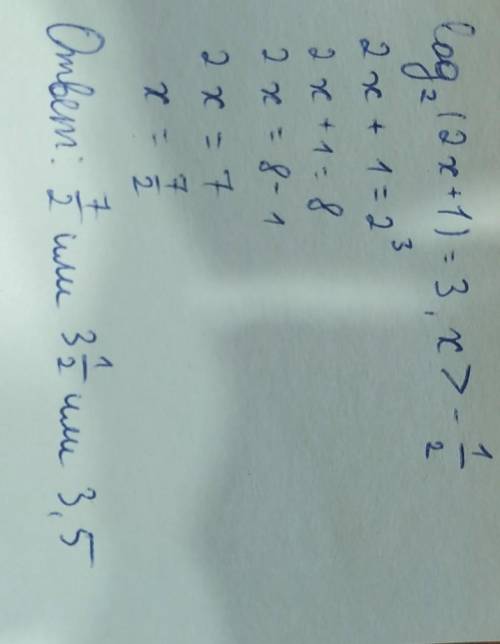 log₂(2x+1) = 3, x > -1/2
2x + 1 = 2³
2x + 1 = 8
2x = 8 - 1
2x = 7
x = 7/2
Ответ: 7/2 или 3 1/2 или 3,5